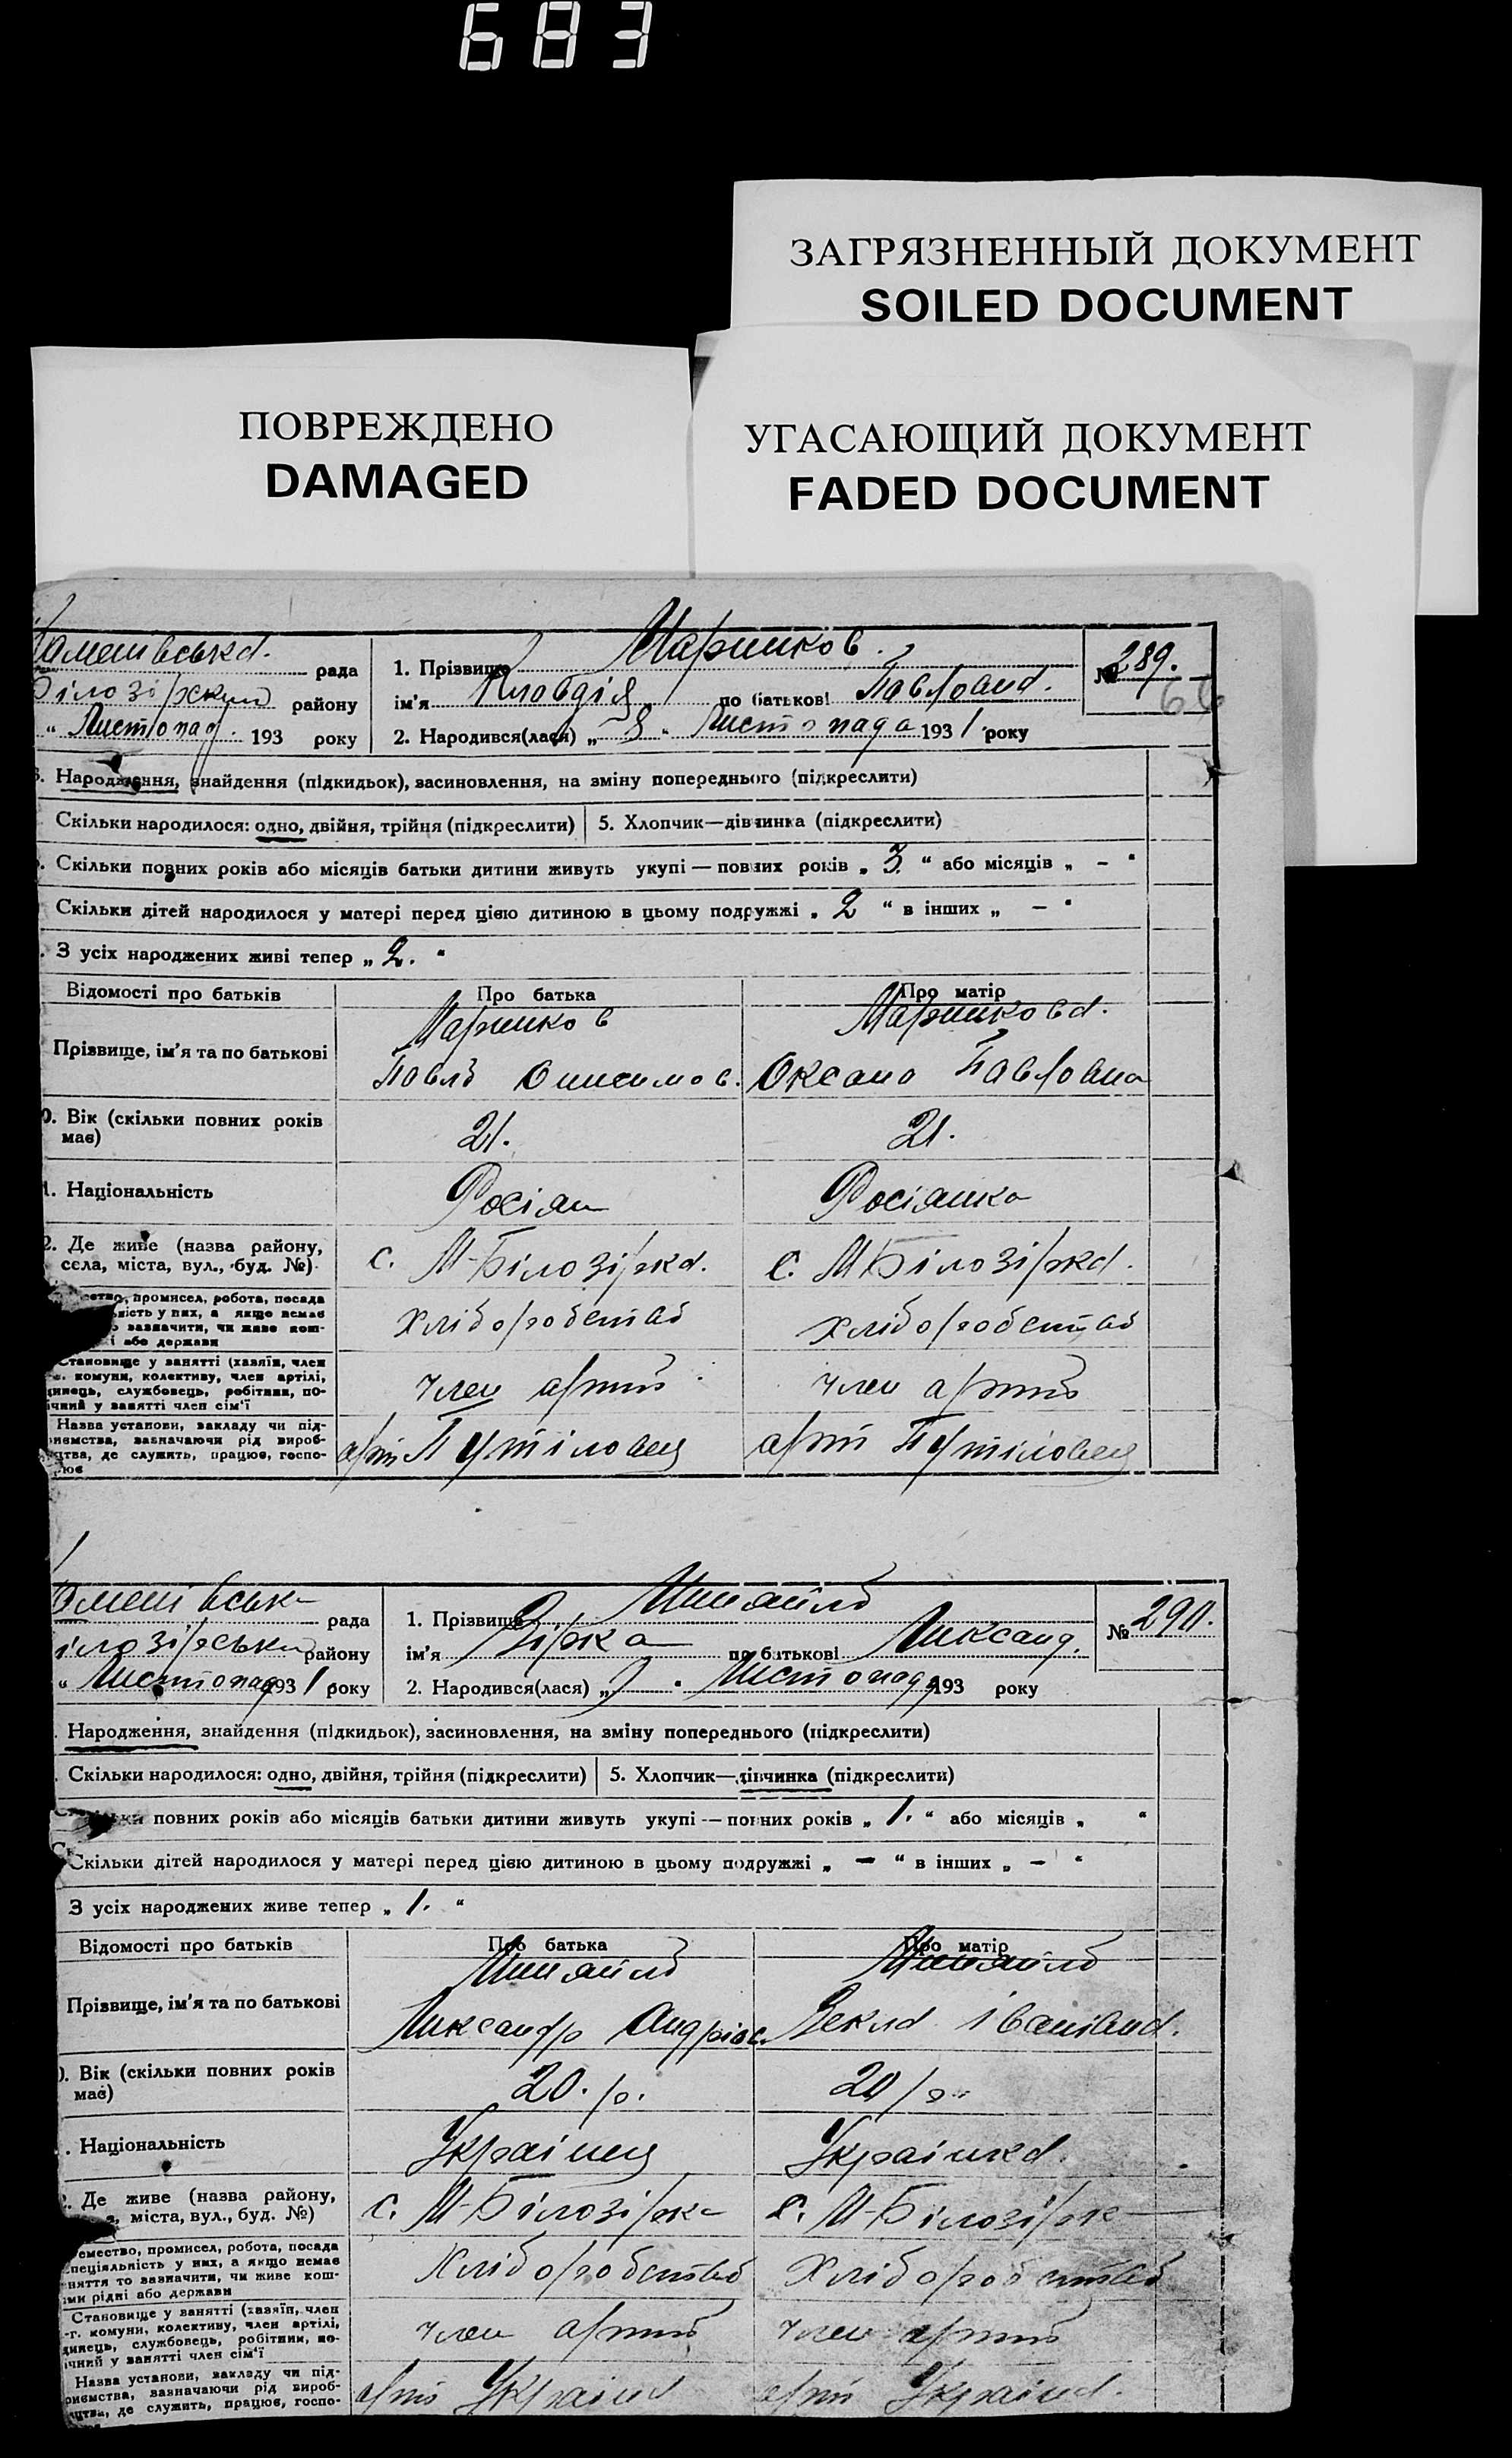 683
ЗАГРЯЗНЕННЫЙ ДОКУМЕНТ
SOILED DOCUMENT
ПОВРЕЖДЕНО
DAMAGED
УГАСАЮЩИЙ ДОКУМЕНТ
FADED DOCUMENT
рада
району
“ Листопад. 193 року
1. Прізвище Маринков.
ім'я Кловдія по батькові Павловна.
2. Народився(лася) „ 8 “ Листопада 1931 року
№ 289.
66
Народження, знайдення (підкидьок), засиновлення, на зміну попереднього (підкреслити)
Скільки народилося: одно, двійня, трійня (підкреслити) 5. Хлопчик—дівчинка (підкреслити)
Скільки повних років або місяців батьки дитини живуть укупі — повних років „ 3. “ або місяців „ – “
Скільки дітей народилося у матері перед цією дитиною в цьому подружжі „ 2 “ в інших „ – “
З усіх народжених живі тепер „ 2. “
Відомості про батьків Про батька Про матір
Прізвище, ім'я та по батькові
Маринков
Павло Онисимов.
Маринкова.
Оксана Павловна
0. Вік (скільки повних років має) 21. 21.
1. Національність Росіян Росіянка
2. Де живе (назва району, села, міста, вул., буд. №) с. М-Білозірка. с. М-Білозірка.
промисел, робота, посада
ність у них, а якщо немає
зазначити, чи живе кош-
і або держави
Хліборобство Хліборобство
Становище у занятті (хазяїн, член
комуни, колективу, член артілі,
службовець, робітник, по-
ічний у занятті член сім'ї
член артіл член артіл
Назва установи, закладу чи під-
приємства, зазначаючи рід вироб-
цтва, де служить, працює, госпо-
рює
арт Путіловец арт Путіловец
рада
ілозірськи району
“ Листопад 1931 року
1. Прізвище Миняйло
ім'я Вірка по батькові Ликсанд.
2. Народився(лася) „ “ Листопад 193 року
№ 290.
Народження, знайдення (підкидьок), засиновлення, на зміну попереднього (підкреслити)
Скільки народилося: одно, двійня, трійня (підкреслити) 5. Хлопчик—дівчинка (підкреслити)
повних років або місяців батьки дитини живуть укупі — повних років „ 1. “ або місяців „ “
Скільки дітей народилося у матері перед цією дитиною в цьому подружжі „ – “ в інших „ – “
З усіх народжених живе тепер „ 1. “
Відомості про батьків Про батька Про матір
Прізвище, ім'я та по батькові
Миняйло
Ликсандр Андріов.
Миняйло
Векла Іванівна.
Вік (скільки повних років має) 20.р. 20р.
Національність Українец Українка.
Де живе (назва району, міста, вул., буд. №) с. М-Білозірка с. М-Білозірк
емество, промисел, робота, посада
спеціяльність у них, а якщо немає
няття то зазначити, чи живе кош-
ми рідні або держави
Хліборобство Хліборобство
Становище у занятті (хазяїн, член
-г. комуни, колективу, член артілі,
динець, службовець, робітник, по-
ічний у занятті член сім'ї
член артіл член артіл
Назва установи, закладу чи під-
приємства, зазначаючи рід вироб-
цтва, де служить, працює, госпо-
арт Україна арт Україна.